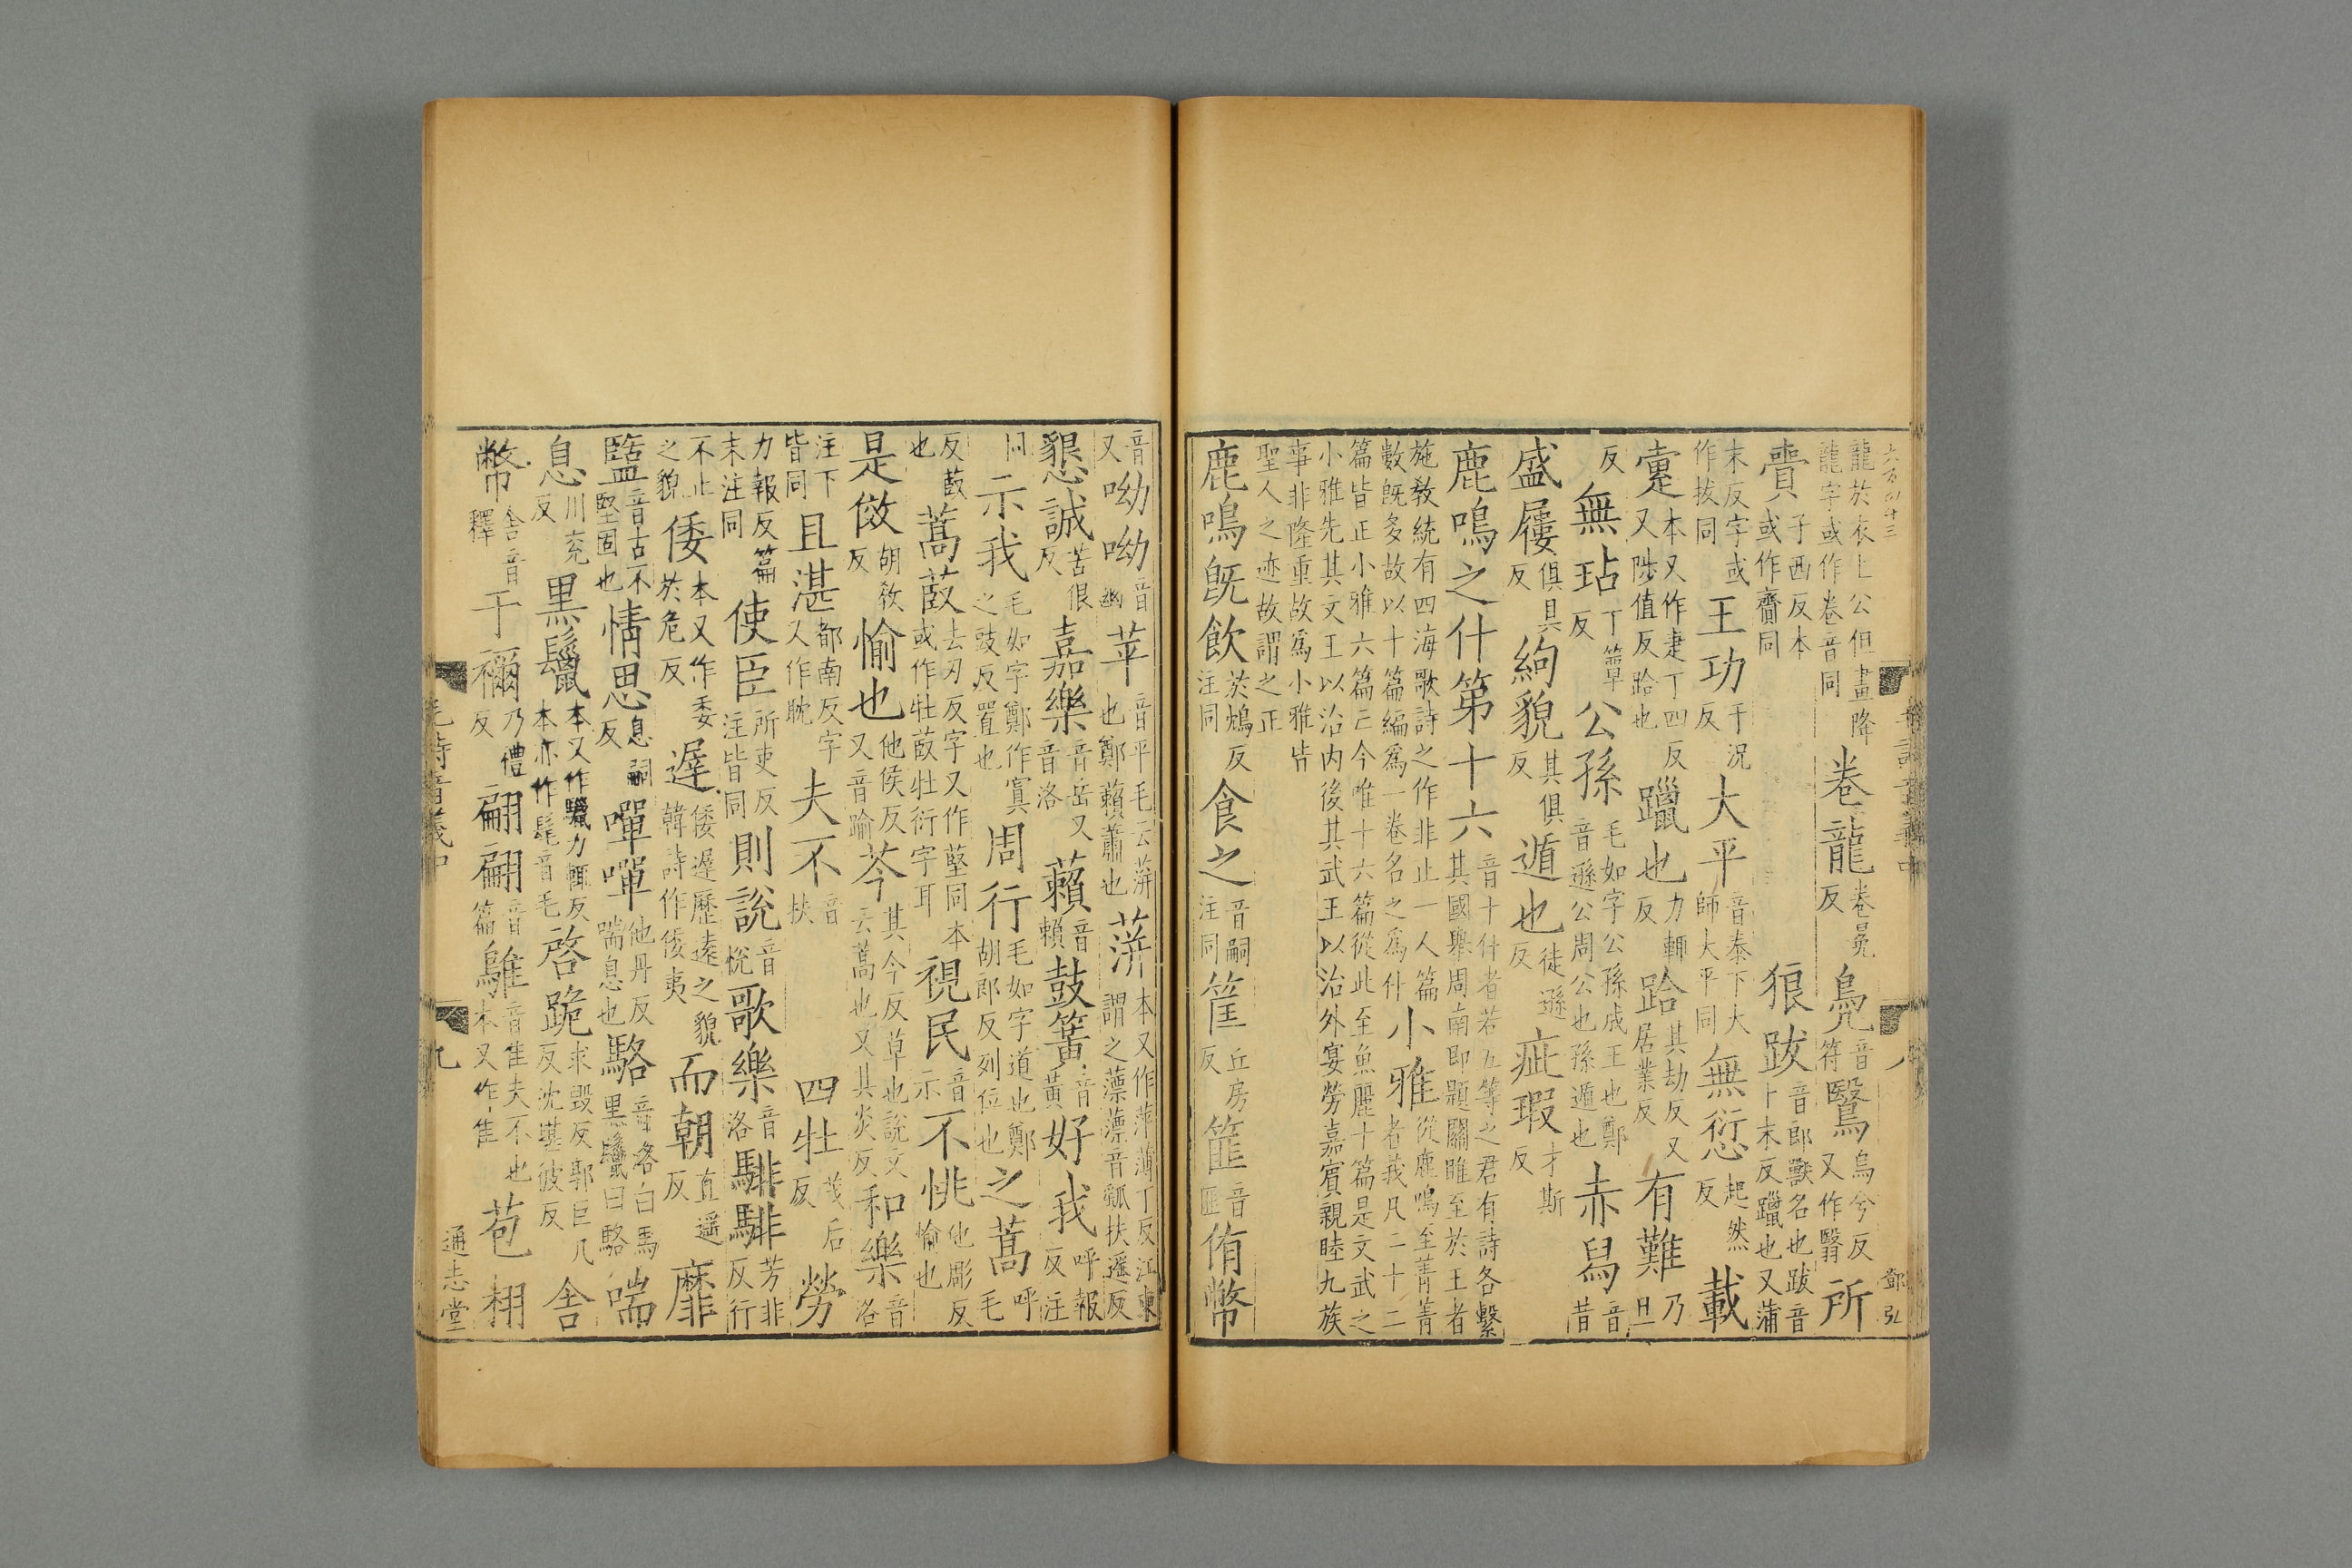 六百四十三
龍於衣上公但畫降龍字或作卷音同卷龍卷冕反鳧音符鷖烏兮反又作鷖所
賷子西反本或作齎同狼跋音郎獸名也跋音卜末反躐也又蒲
末反字或作拔同王功于況反大平音泰下大師大平同無愆起然反載
疐本又作疌丁四反又陟值反跲也躐也力輒反跲其劫反又居業反有難乃旦
反無玷丁簟反公孫毛如字公孫成王也鄭音遜公周公也孫遁也赤舄音昔
盛屨俱具反絇貌其俱反遁也徒遜反疵瑕才斯反
鹿鳴之什第十六音十什者若五等之君有詩各繫其國舉周南即題關雎至於王者
施敎統有四海歌詩之作非止一人篇數旣多故以十篇編爲一卷名之爲什小雅從鹿鳴至菁菁者莪凡二十二
篇皆正小雅六篇亡今唯十六篇從此至魚麗十篇是文武之小雅先其文王以治内後其武王以治外宴勞嘉賓親睦九族
事非隆重故爲小雅皆聖人之迹故謂之正
鹿鳴旣飲於鴆反注同食之音嗣注同筐丘房反篚音匪侑幣
毛詩音義中
八
鄧弘
音又呦呦音幽苹音平毛云蓱也鄭藾蕭也蓱本又作萍薄丁反江東謂之薸薸音瓢扶遥反
懇誠苦很反嘉樂音岳又音洛藾音賴鼓簧音黃好我呼報反注
同示我毛如字鄭作寘之豉反置也周行毛如字道也鄭胡郎反列位也之蒿呼毛
反菣也蒿菣去刃反字又作䕬同本或作牡菣牡衍字耳視民音示不恌他彫反愉也
是傚胡敎反愉也他侯反又音踰芩其今反草也說文云蒿也又其炎反和樂音洛
注下皆同且湛都南反字又作耽夫不音扶四牡茂后反勞
力報反篇末注同使臣所吏反注皆同則說音悅歌樂音洛騑騑芳非反行
不止之貌倭本又作委於危反遲倭遲歷遠之貌韓詩作倭夷而朝直遥反靡
盬音古不堅固也情思息嗣反嘽嘽他丹反喘息也駱音洛白馬黑鬣曰駱喘
息川兖反黑鬣本又作力輒反本亦作髦音毛啓跪求毀反郭巨几反沈堪彼反舍
幣舍音釋于禰乃禮反翩翩音篇鵻音隹夫不也本又作隹苞栩
毛詩音義中
九
通志堂